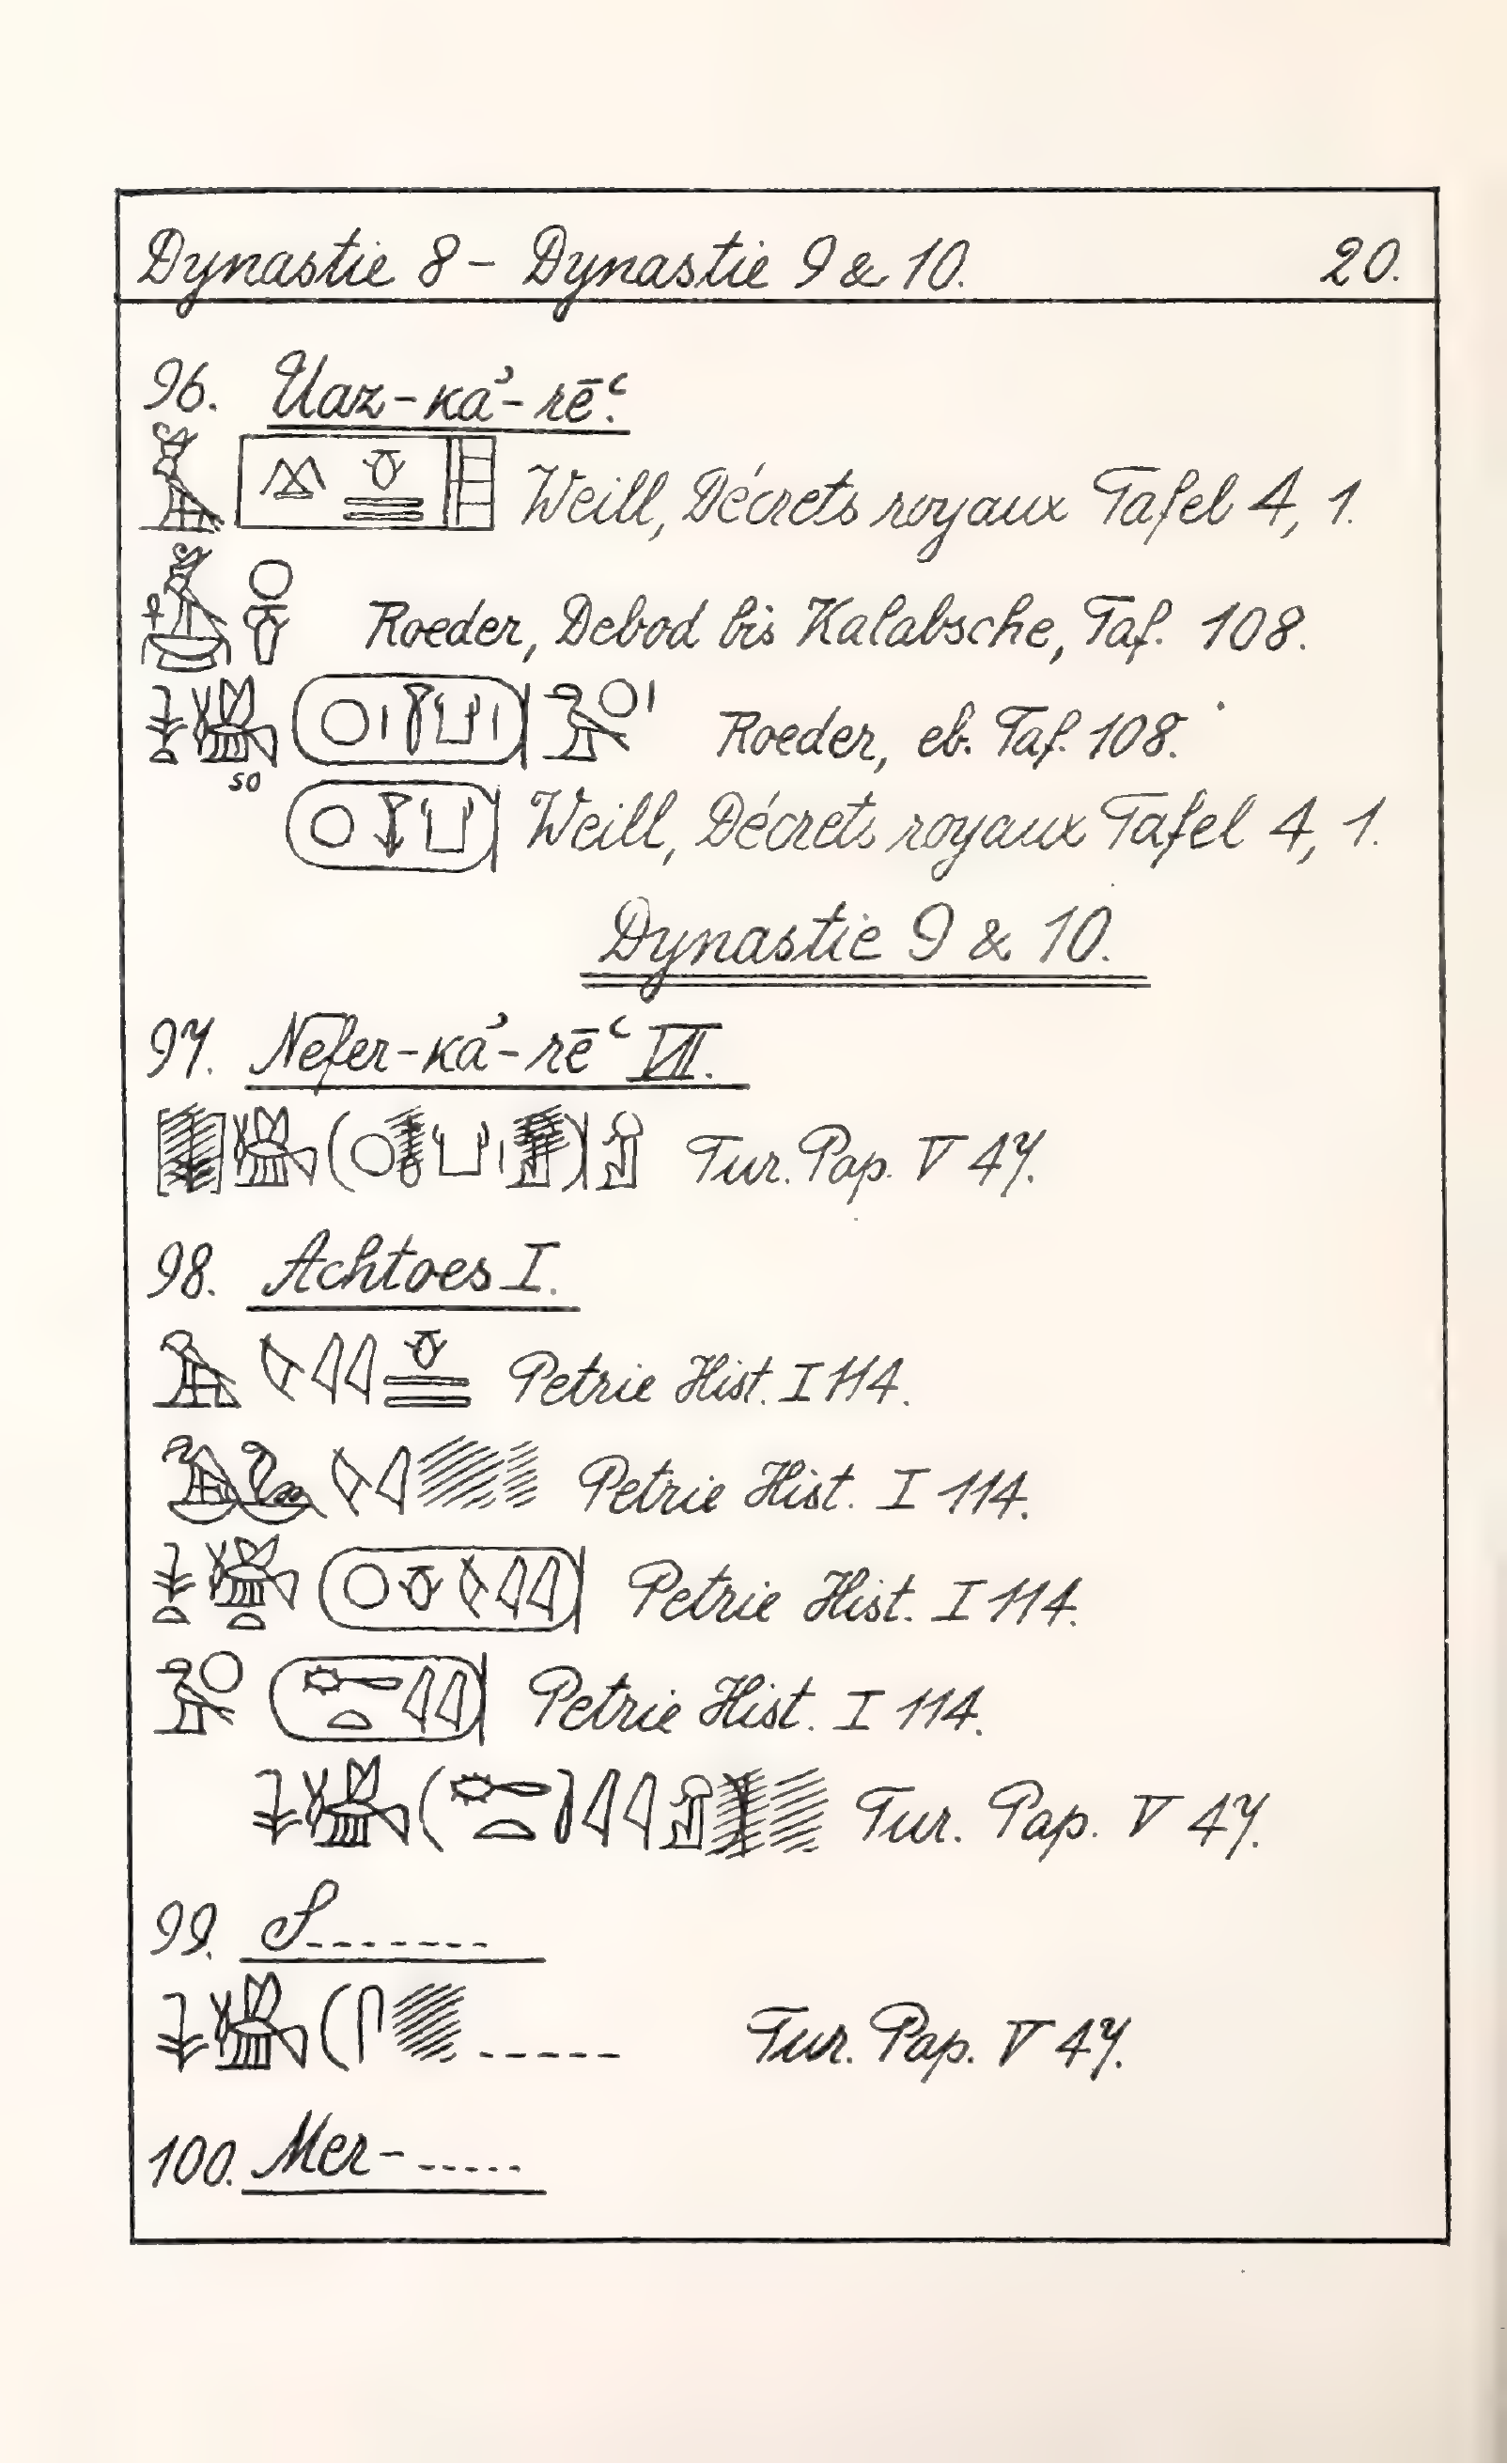 Dynastie 8 – Dynastie 9 & 10. 20.
96. Uaz-kaʾ-rēʿ.
Weill, Décrets royaux Tafel 4, 1.
Roeder, Debod bis Kalabsche, Taf. 108.
Roeder, eb. Taf. 108.
so
Weill, Décrets royaux Tafel 4, 1.
Dynastie 9 & 10.
97. Nefer-kaʾ-rēʿ VII.
Tur. Pap. V 47.
98. Achtoes I.
Petrie Hist. I 114.
Petrie Hist. I 114.
Petrie Hist. I 114.
Petrie Hist. I 114.
Tur. Pap. V 47.
99. S-------
----- Tur. Pap. V 47.
100. Mer-.....